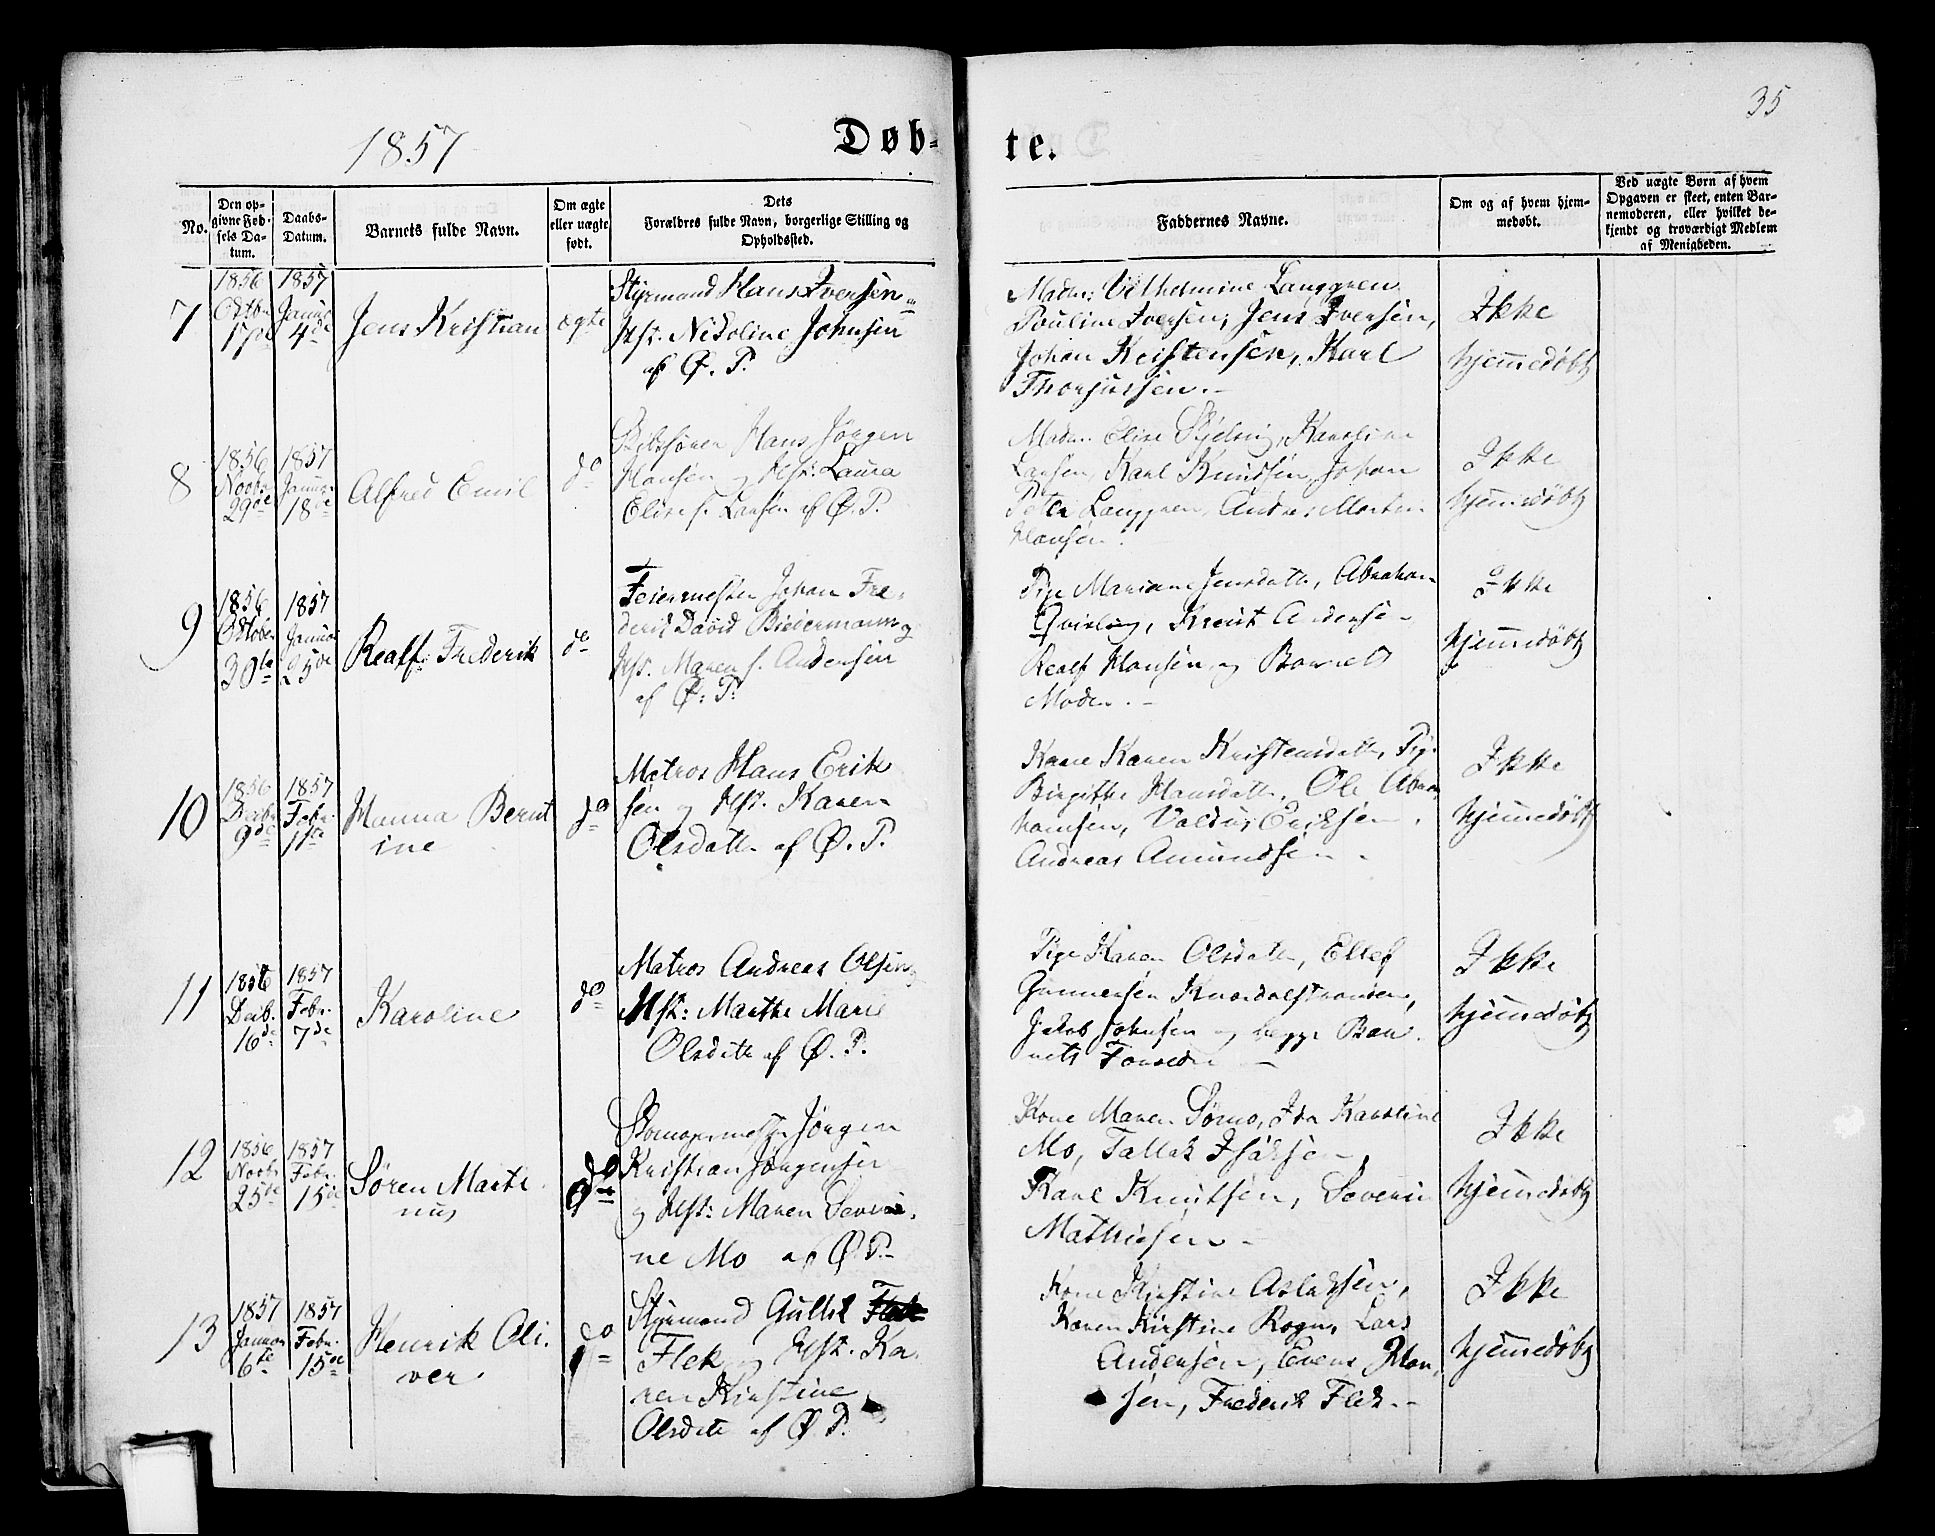 35
1857
Døb-
te.
No.
Den op-
givne Fød-
sels Da-
tum.
Daabs-
Datum.
Barnets fulde Navn.
Om ægte
eller uægte
født.
Dets
Forældres fulde Navn, borgerlige Stilling og
Opholdssted.
Faddernes Navne.
Om og af hvem hjem-
medøbt.
Ved uægte Børn af hvem
Opgaven er skeet, enten Bar-
nemoderen, eller hvilket be-
kjendt og troværdigt Medlem
af Menigheden.
7
1856
Octbr
17de
1857
Januar
4de
Jens Kristian
ægte
Styrmand Hans Iversen
Hst. Nikoline Johnsen
af Ø. P.
Madm: Vilhelmine Langgren
Pouline Iversen, Jens Iversen,
Johan Kristensen, Karl
Thorjussen.-
Ikke
hjemmedøbt
8
1856
Novbr
29de
1857
Januar
18de
Alfred Emil
do
Hans Jörgen
Hansen og Hst: Laura
Elise f. Larsen af Ø. P.
Madm. Elise Karoline
Larsen, Karl Knudsen, Johan
Peter Langgren, Andreas Morten
Hansen.
Ikke
hjemmedøbt
9
1856
Oktober
30te
1857
Januar
25de
Realf Frederik
do
Feiermester Johan Fre-
derik David Biedermann og
Hst. Maren f. Andersen
af Ø: P:
Pige Mariane Jensdatte, Abraham
Qvisling, Knut Andersen
Realf Hansen og Barnets
Moder.-
Ikke
hjemmedøbt
10
1856
Decbr
9de
1857
Febr.
1ste
Hanna Bernt
ine
do
Matros Hans Erik
sen og Hst. Karen
Olsdatte af Ø. P.
Kone Karen Kristensdatte, Pige
Birgitte Hansdatte, Ole Abra
hamsen, Eriksen,
Andreas Amundsen.
Ikke
hjemmedøbt
11
1856
Decb.
16de
1857
Febr.
7de
Karoline
do
Matros Andreas Olsen og
Hst: Marthe Marie
Olsdatte af Ø. P.
Pige Karen Olsdatte, Ellef
Gunnersen
Jakob Johnsen og begge Bar-
nets Forældre
Ikke
hjemmedøbt
12
1856
Novbr
25de
1857
Febr.
15de
Søren Marti
nus
do
Skomagermester Jörgen
Kristian Jörgensen
og Hst: Maren Severi-
ne Mo af Ø. P.-
Kone Maren Sørmo, Ida Karoline
Mo, Tallak Isaksen
Karl Knutsen, Severin
Mathiesen -
Ikke
hjemmedøbt
13
1857
Januar
6te
1857
Febr.
15de
Henrik Oli-
ver.
do
Styrmand Gullik
Flek og Hst. Ka-
ren Kirstine
Olsdatte af Ø P.
Kone Kirstine Aslaksen,
Karen Kirstine Rogn, Lars
Andersen, Evens Han
sen, Frederik Flek.-
Ikke
hjemmedøbt